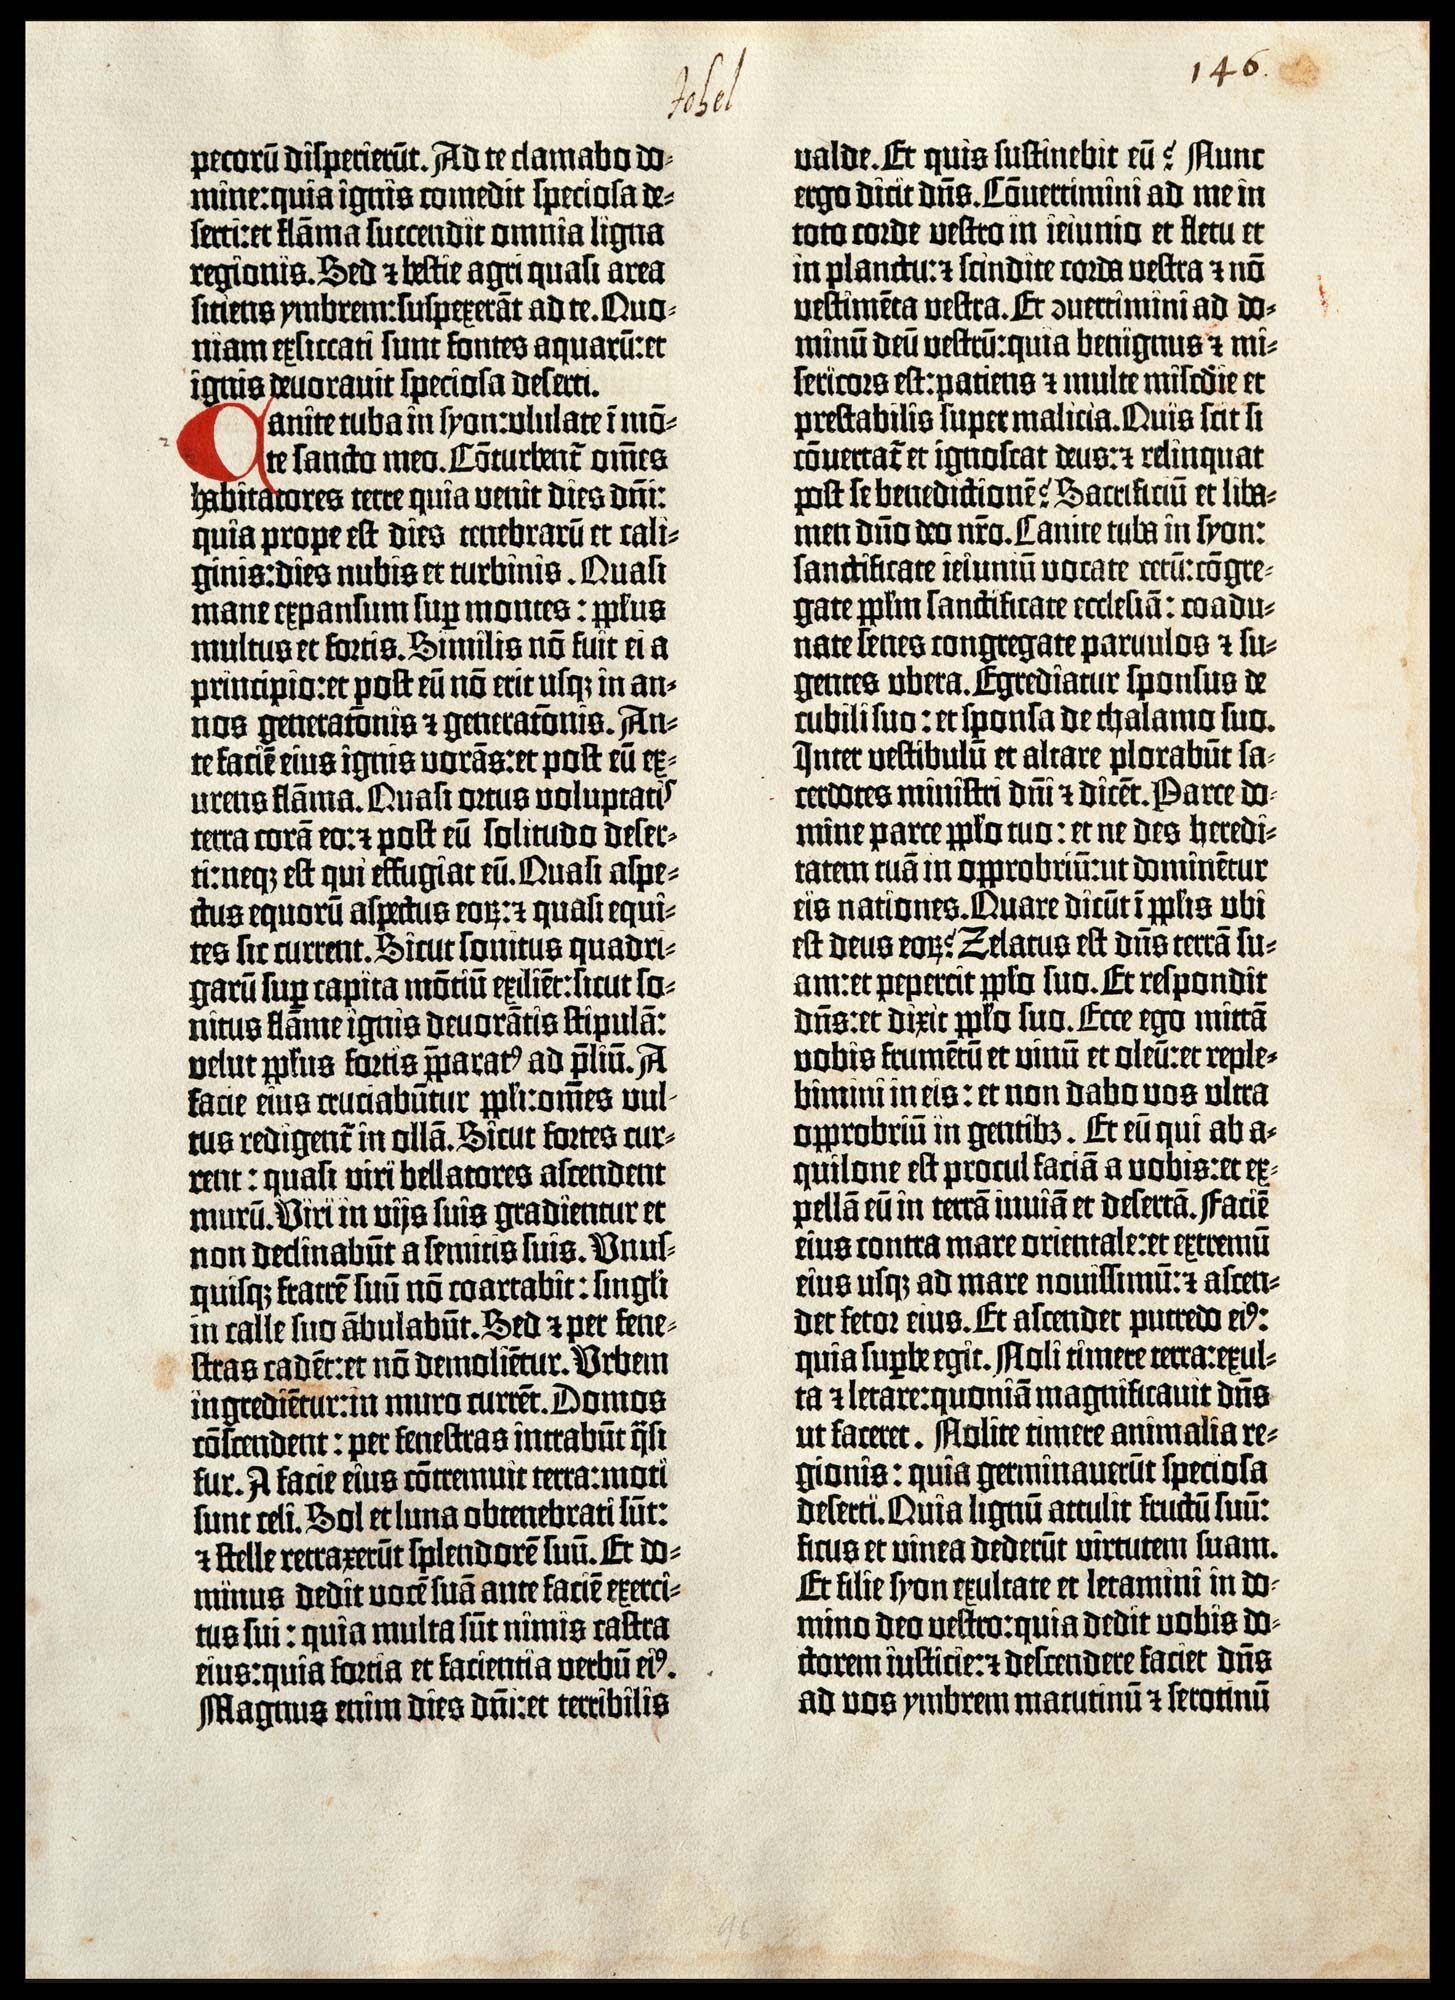 Johel
146.
pecorū disperierūt. Ad te clamabo do-
mine:quia ignis comedit speciosa de-
serti:et flāma succendit omnia ligna
regionis. Sed ⁊ bestie agri quasi area
sitiens ymbrem:suspexerāt ad te. Quo-
niam exsiccati sunt fontes aquarū:et
ignis devorauit speciosa deserti.
2
Canite tuba in syon:ululate ī mō-
te sancto meo. Cōturbent᷑ om̄es
habitatores terre quia venit dies dn̄i:
quia prope est dies tenebrarū et cali-
ginis:dies nubis et turbinis. Quasi
mane expansum suꝑ montes: pp̄lus
multus et fortis. Similis nō fuit ei a
principio:et post eū nō erit usqꝫ in an-
nos generatōnis ⁊ generatōnis. An-
te faciē eius ignis vorās:et post eū ex-
urens flāma. Quasi ortus voluptatꝭ
terra corā eo:⁊ post eū solitudo deser-
ti:neqꝫ est qui effugiat eū. Quasi aspe-
ctus equorū aspectus eoꝝ:⁊ quasi equi-
tes sic current. Sicut sonitus quadri-
garū suꝑ capita mōtiū exiliēt:sicut so-
nitus flāme ignis devorātis stipulā:
velut pp̄lus fortis p̄paratꝰ ad p̄liū. A
facie eius cruciabūtur pp̄li:om̄es vul-
tus redigent᷑ in ollā. Sicut fortes cur-
rent: quasi viri bellatores ascendent
murū. Viri in vijs suis gradientur et
non declinabūt a semitis suis. Vnus-
quisqꝫ fratrē suū nō coartabit: singłi
in calle suo ābulabūt. Sed ⁊ per fene-
stras cadēt:et nō demoliētur. Vrbem
ingrediētur:in muro currēt. Domos
cōscendent: per fenestras intrabūt q̄si
fur. A facie eius cōtremuit terra:moti
sunt celi. Sol et luna obtenebrati sūt:
⁊ stelle retraxerūt splendorē suū. Et do-
minus dedit vocē suā ante faciē exerci-
tus sui: quia multa sūt nimis castra
eius:quia fortia et facientia verbū eiꝰ.
Magnus enim dies dn̄i:et terribilis
valde. Et quis sustinebit eū? Nunc
ergo dicit dn̄s. Cōuertimini ad me in
toto corde vestro in ieiunio et fletu et
in planctu:⁊ scindite corda vestra ⁊ nō
vestimēta vestra. Et ꝯuertimini ad do-
minū deū vestrū:quia benignus ⁊ mi-
sericors est:patiens ⁊ multe misc̄die et
prestabilis super malicia. Quis scit si
cōuertat᷑ et ignoscat deus:⁊ relinquat
post se benedictionē? Sacrificiū et liba-
men dn̄o deo nr̄o. Canite tuba in syon:
sanctificate ieiuniū vocate cetū:cōgre-
gate pp̄lm sanctificate ecclesiā: coadu-
nate senes congregate paruulos ⁊ su-
gentes vbera. Egrediatur sponsus de
cubili suo: et sponsa de thalamo suo.
Inter vestibulū et altare plorabūt sa-
cerdotes ministri dn̄i ⁊ dicēt. Parce do-
mine parce pp̄lo tuo: et ne des heredi-
tatem tuā in opprobriū:ut dominētur
eis nationes. Quare dicūt ī pp̄lis vbi
est deus eoꝝ? Zelatus est dn̄s terrā su-
am:et pepercit pp̄lo suo. Et respondit
dn̄s:et dixit pp̄lo suo. Ecce ego mittā
vobis frumētū et vinū et oleū:et reple-
bimini in eis: et non dabo vos vltra
opprobriū in gentibꝫ. Et eū qui ab a-
quilone est procul faciā a vobis:et ex-
pellā eū in terrā inuiā et desertā. Faciē
eius contra mare orientale:et extremū
eius usqꝫ ad mare nouissimū:⁊ ascen-
det fetor eius. Et ascendet putredo eiꝰ:
quia suꝑbe egit. Noli timere terra:exul-
ta ⁊ letare:quoniā magnificauit dn̄s
ut faceret. Nolite timere animalia re-
gionis: quia germinauerūt speciosa
deserti. Quia lignū attulit fructū suū:
ficus et vinea dederūt virtutem suam.
Et filie syon exultate et letamini in do-
mino deo vestro:quia dedit vobis do-
ctorem iusticie:⁊ descendere faciet dn̄s
ad vos ymbrem matutinū ⁊ serotinū
96